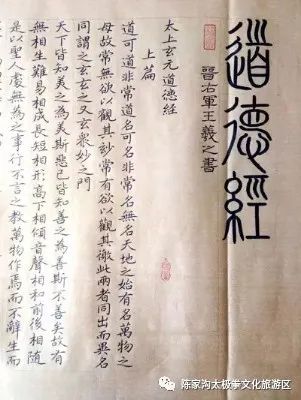 道德經
晉右軍王羲之書
太上玄元道德經
上篇
道可道非常道名可名非常名無名天地之始有名萬物之
母故常無欲以觀其妙常有欲以觀其徼此兩者同出而異名
同謂之玄玄之又玄眾妙之門
天下皆知美之為美斯惡已皆知善之為善斯不善矣故有
無相生難易相成長短相形高下相傾音聲相和前後相隨
是以聖人處無為之事行不言之教萬物作焉而不辭生而
陈家沟太极拳文化旅游区